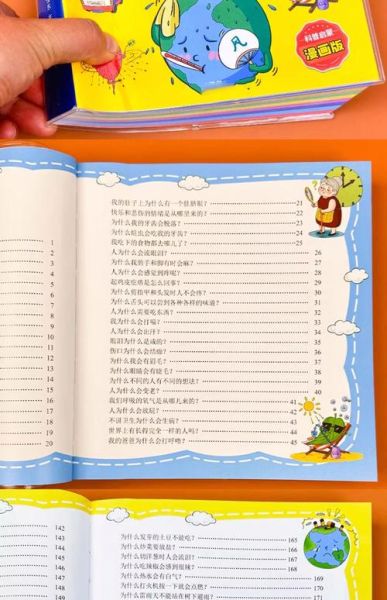 科普启蒙
漫画版
1
2
3
4
5
6
7
8
9
10
11
12
13
14
15
16
17
18
19
20
我的肚子上为什么有一个肚脐眼？ 21
快乐和悲伤的情绪是从哪里来的？ 22
为什么我的牙齿会脱落？ 23
为什么蛀虫会吃我的牙齿？ 24
我吃下的食物都去哪儿了？ 25
人为什么会流眼泪？ 26
为什么我的手和脚有时会麻？ 27
人为什么会感觉到疼呢？ 28
起鸡皮疙瘩是怎么回事？ 29
为什么剪指甲和头发时人不会疼？ 30
为什么舌头可以尝到各种各样的味道？ 31
人为什么需要吃东西？ 32
我为什么会打嗝？ 33
人为什么会出汗？ 34
眼泪为什么是咸的？ 35
伤口为什么会结痂？ 36
为什么我会有眉毛？ 37
为什么眼睛会有睫毛？ 38
为什么不同的人有不同的想法？ 39
人为什么会变老？ 40
我们呼吸的氧气是从哪儿来的？ 41
人为什么会放屁？ 42
不讲卫生为什么会生病？ 43
世界上有长得完全一样的人吗？ 44
我的爸爸为什么会打呼噜？ 45
142
147
148
149
150
151
为什么发芽的土豆不能吃？ 165
为什么炒菜要放盐？ 166
为什么切洋葱时人会流泪？ 167
为什么吃辣椒会感到很辣？ 168
为什么热水会有白气？ 169
为什么打火机按一下就会点燃？ 170
为什么雷雨天不能站在树下避雨？ 171